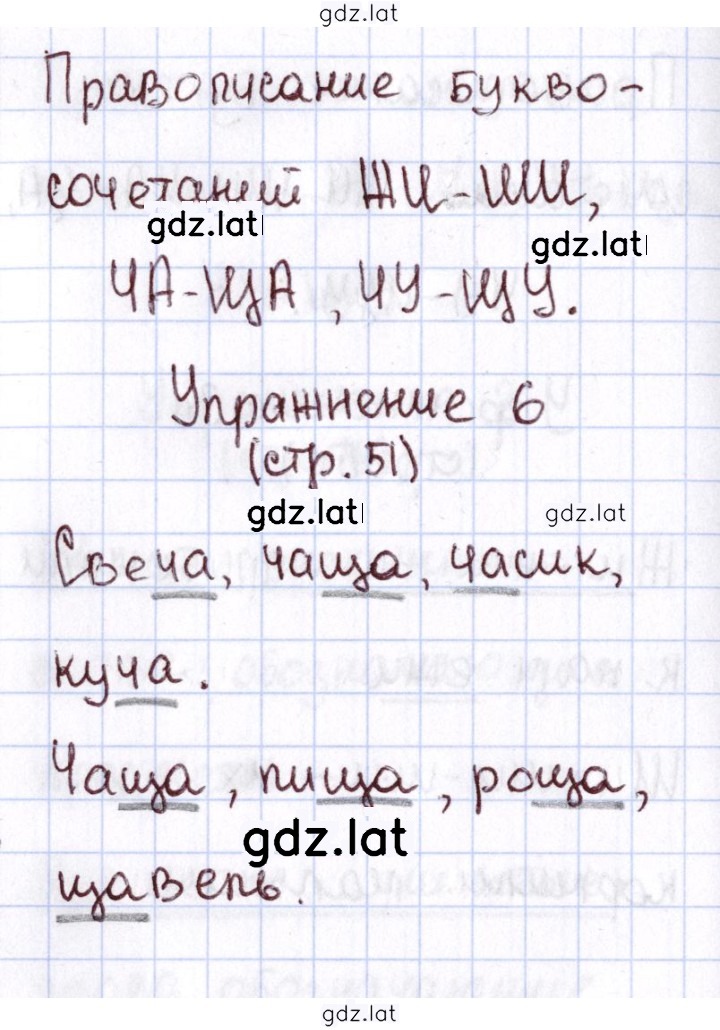 gdz.lat
Правописание букво-
сочетаний ЖИ-ШИ,
gdz.lat
gdz.lat
ЧА-ЩА, ЧУ-ЩУ.
Упражнение 6
(стр. 51)
gdz.lat
gdz.lat
Свеча, чаща, часик,
куча.
Чаща, пища, роща,
gdz.lat
щавель.
gdz.lat